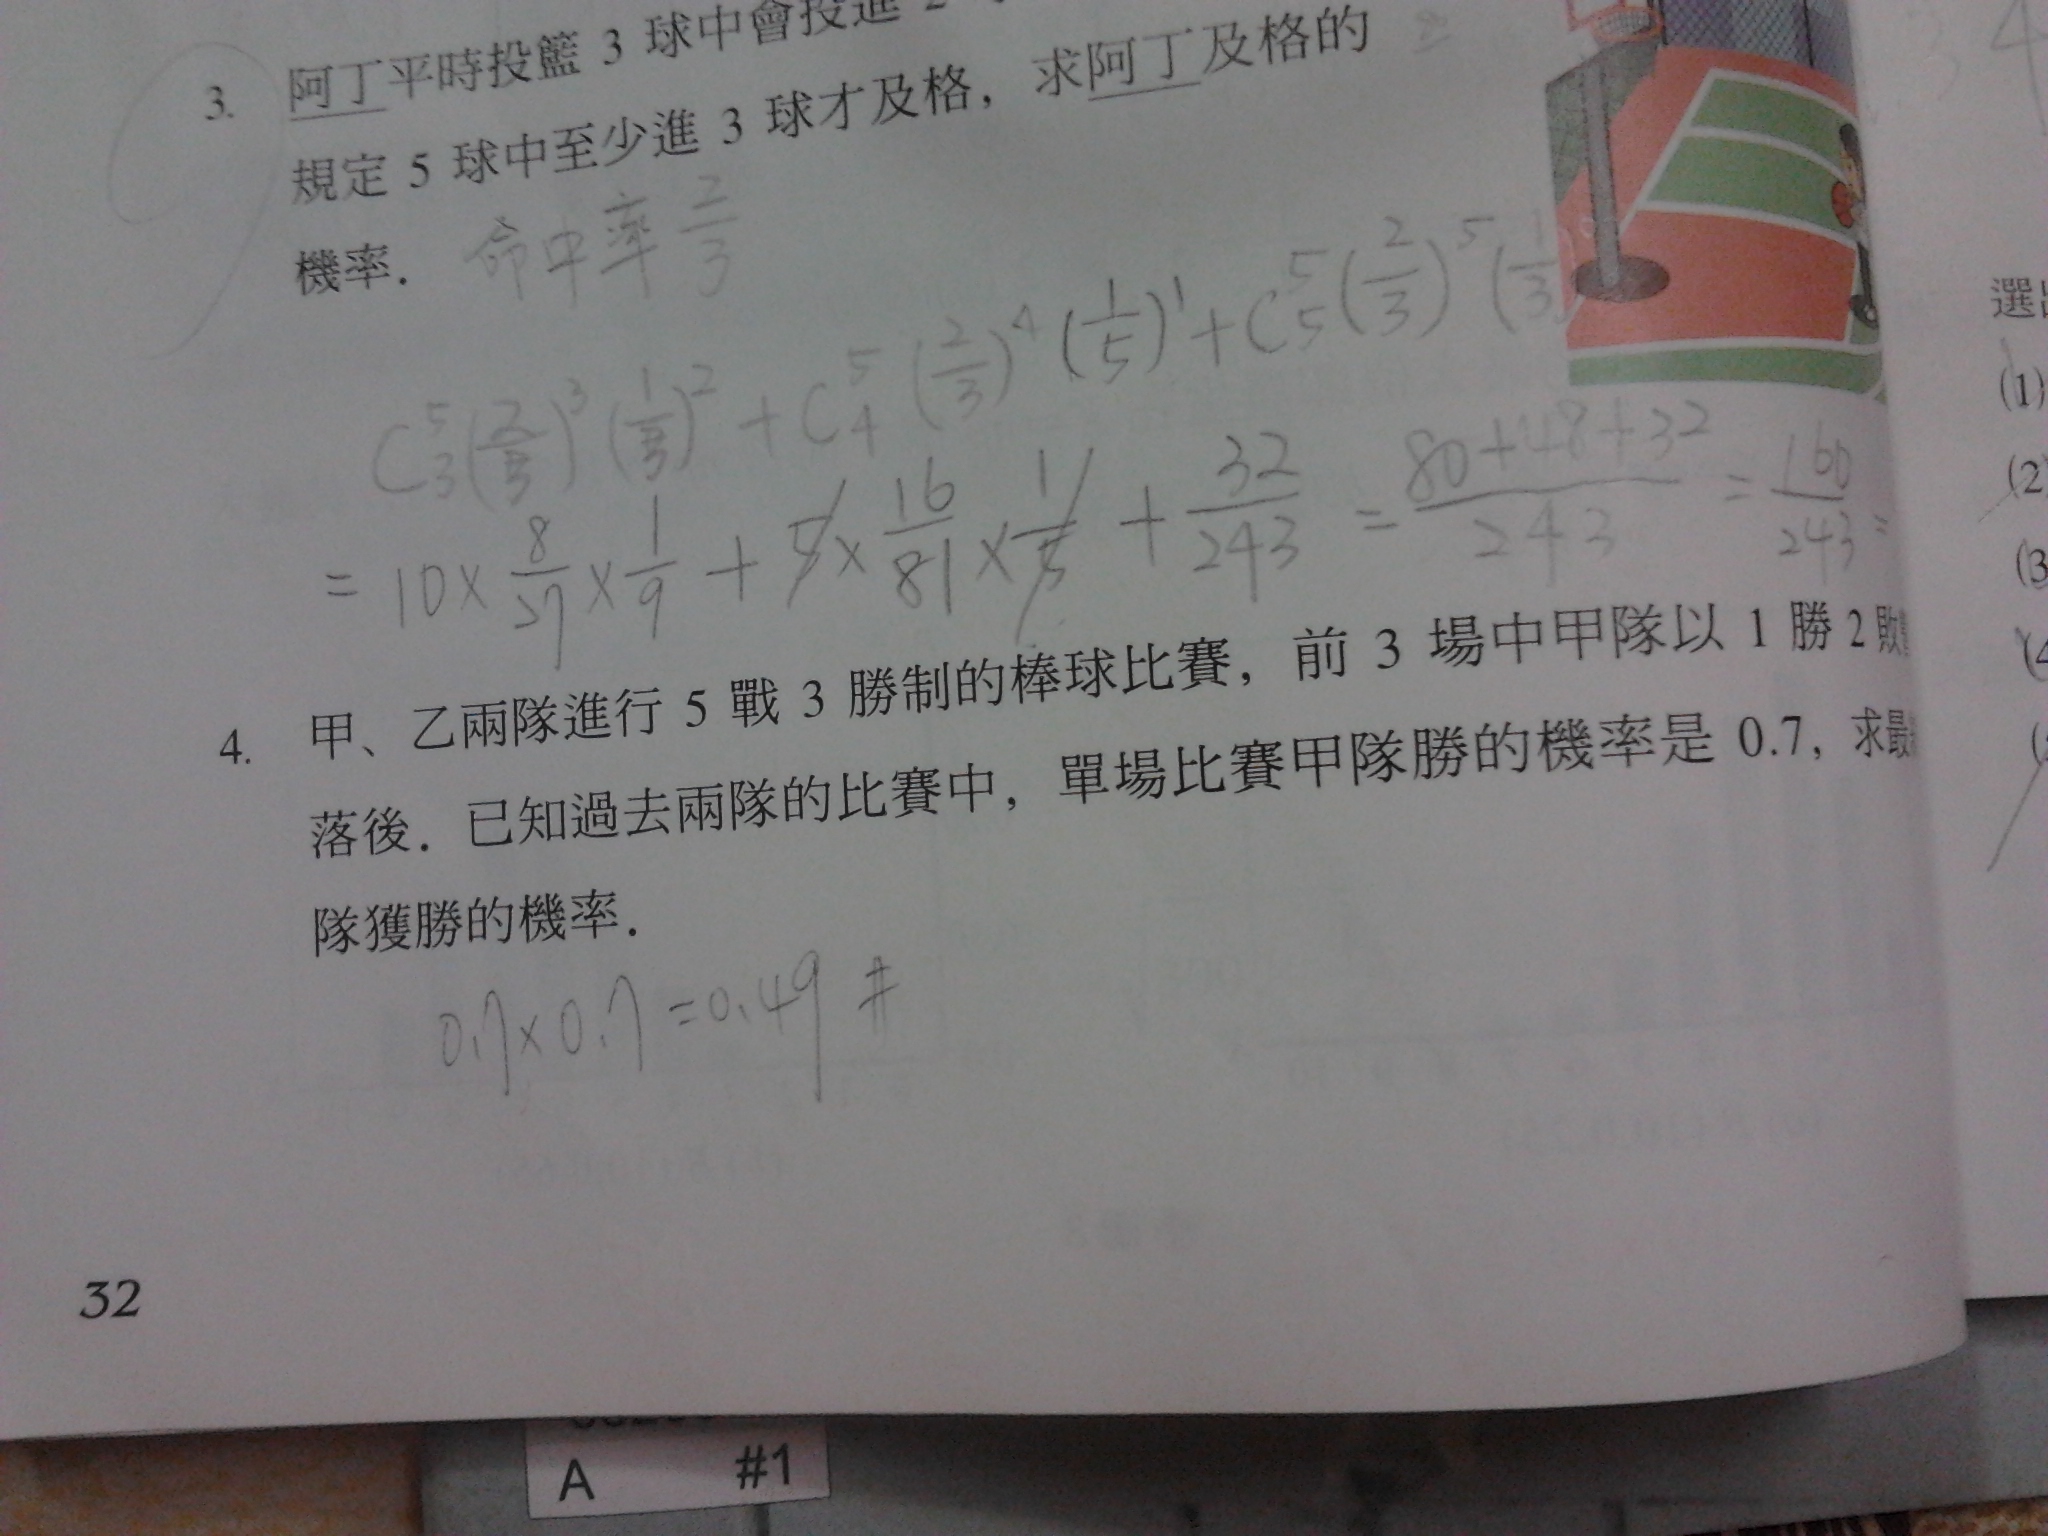 3. 阿丁平時投籃 3 球中會投進 2
規定 5 球中至少進 3 球才及格，求阿丁及格的
機率． 命中率 2/3
C⁵₃(2/3)³(1/3)² + C⁵₄(2/3)⁴(1/5)¹ + C⁵₅(2/3)⁵(1/3)
= 10 × 8/27 × 1/9 + 5 × 16/81 × 1/5 + 32/243 = 80+48+32/243 = 160/243 =
4. 甲、乙兩隊進行 5 戰 3 勝制的棒球比賽，前 3 場中甲隊以 1 勝 2 敗
落後．已知過去兩隊的比賽中，單場比賽甲隊勝的機率是 0.7，求最
隊獲勝的機率．
0.7×0.7=0.49 #
32
A #1
(1)
(2)
(3
(4